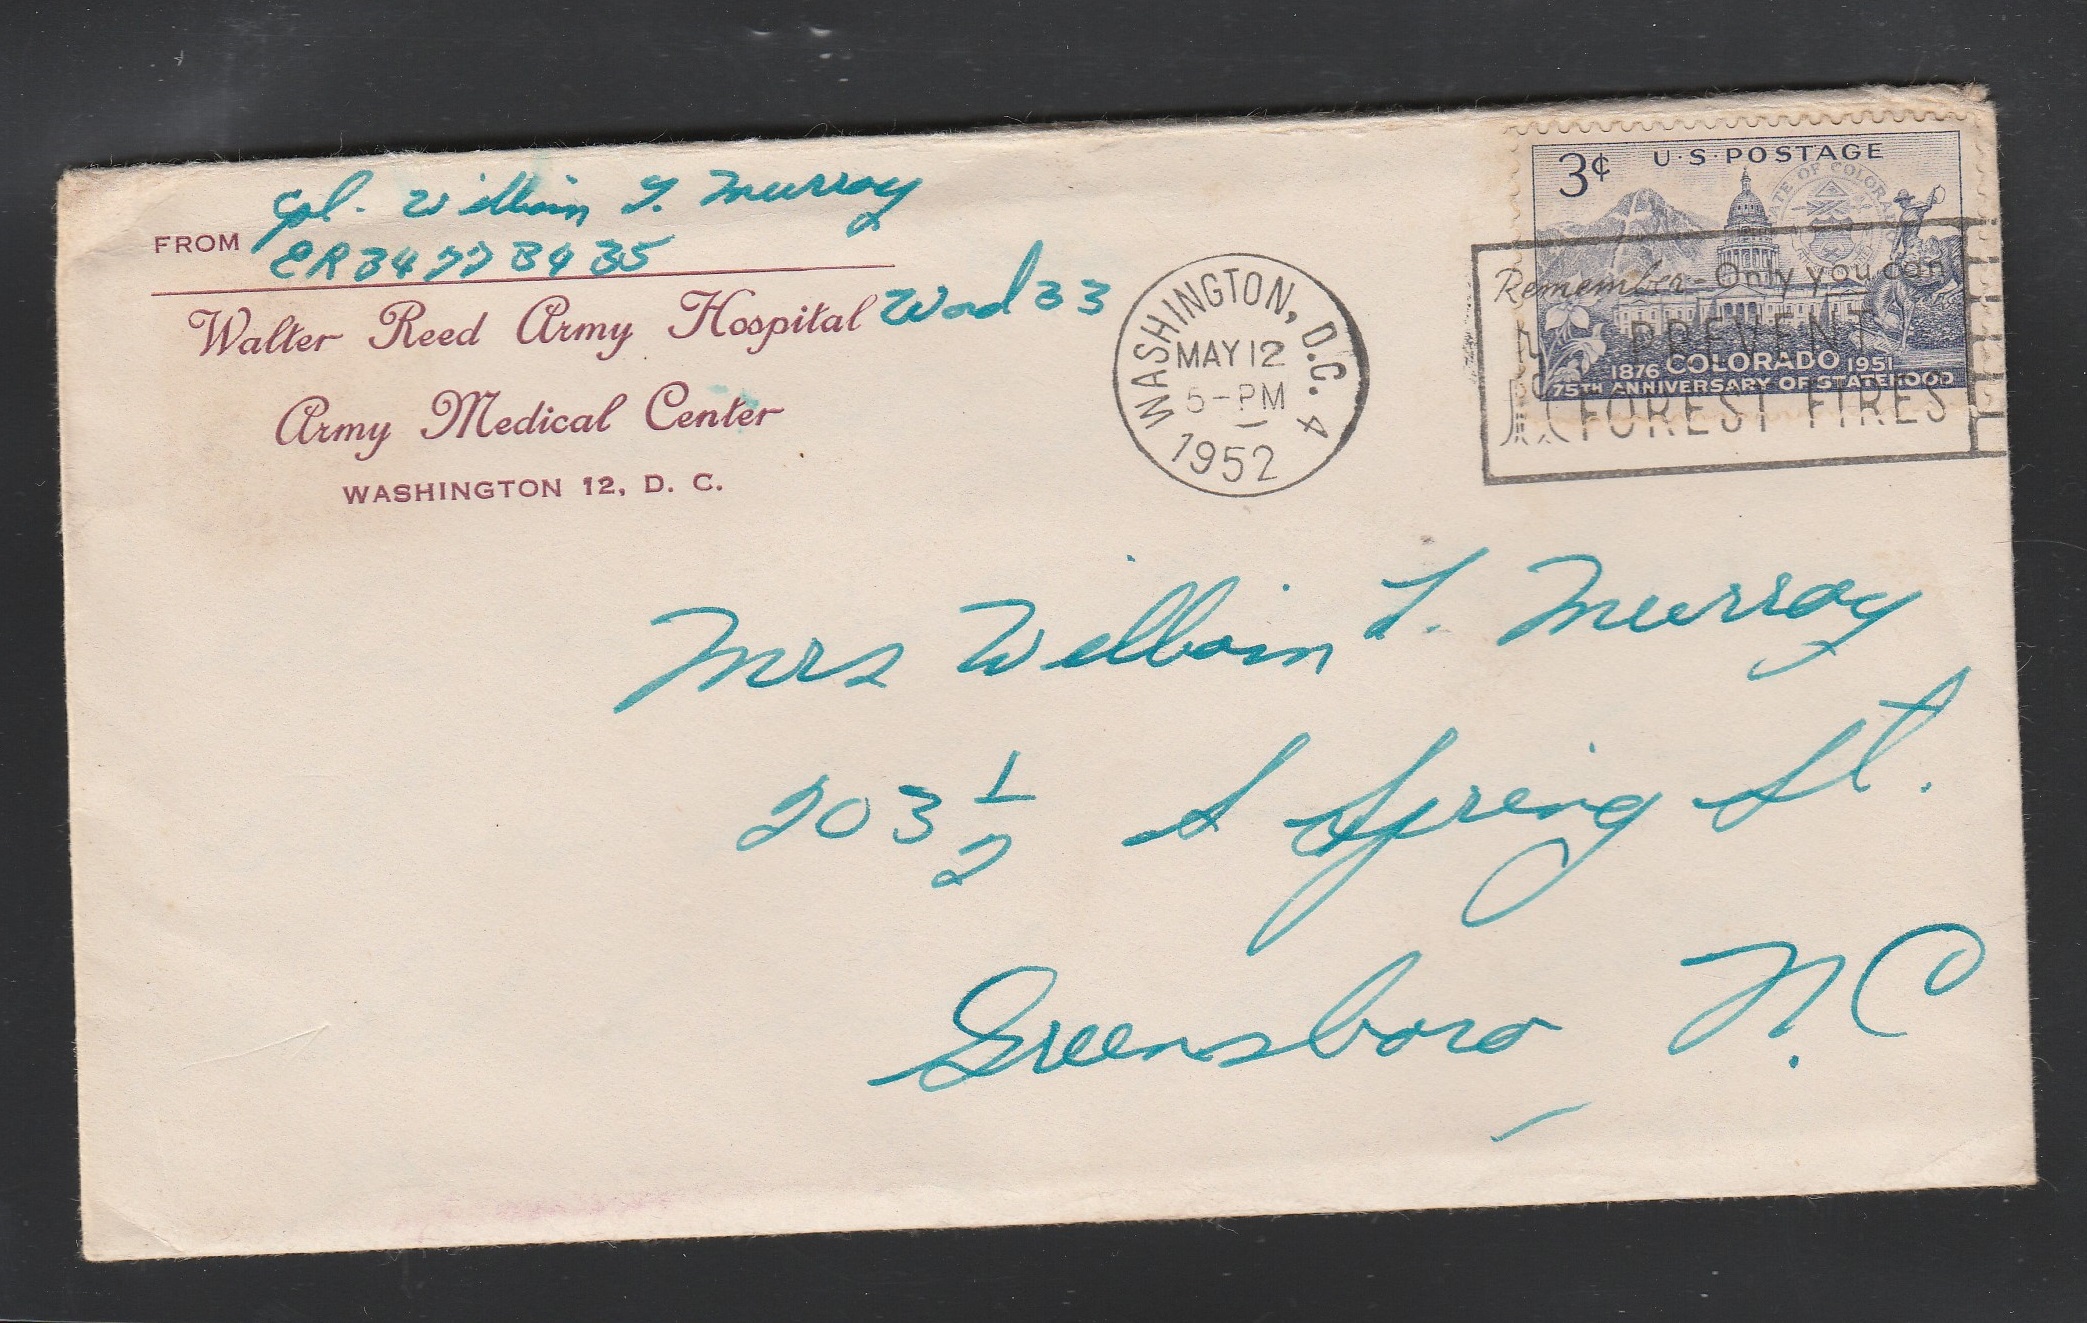 Cpl. William T. Murray
FROM ER 34773435
Walter Reed Army Hospital Ward 33
Army Medical Center
WASHINGTON 12, D. C.
WASHINGTON, D.C. 4
MAY 12
5-PM
1952
3¢ U·S·POSTAGE
STATE OF COLORADO
1876 COLORADO 1951
75TH ANNIVERSARY OF STATEHOOD
Remember-Only you can
PREVENT
FOREST FIRES
Mrs William T. Murray
203 1/2 S Spring St.
Greensboro N.C